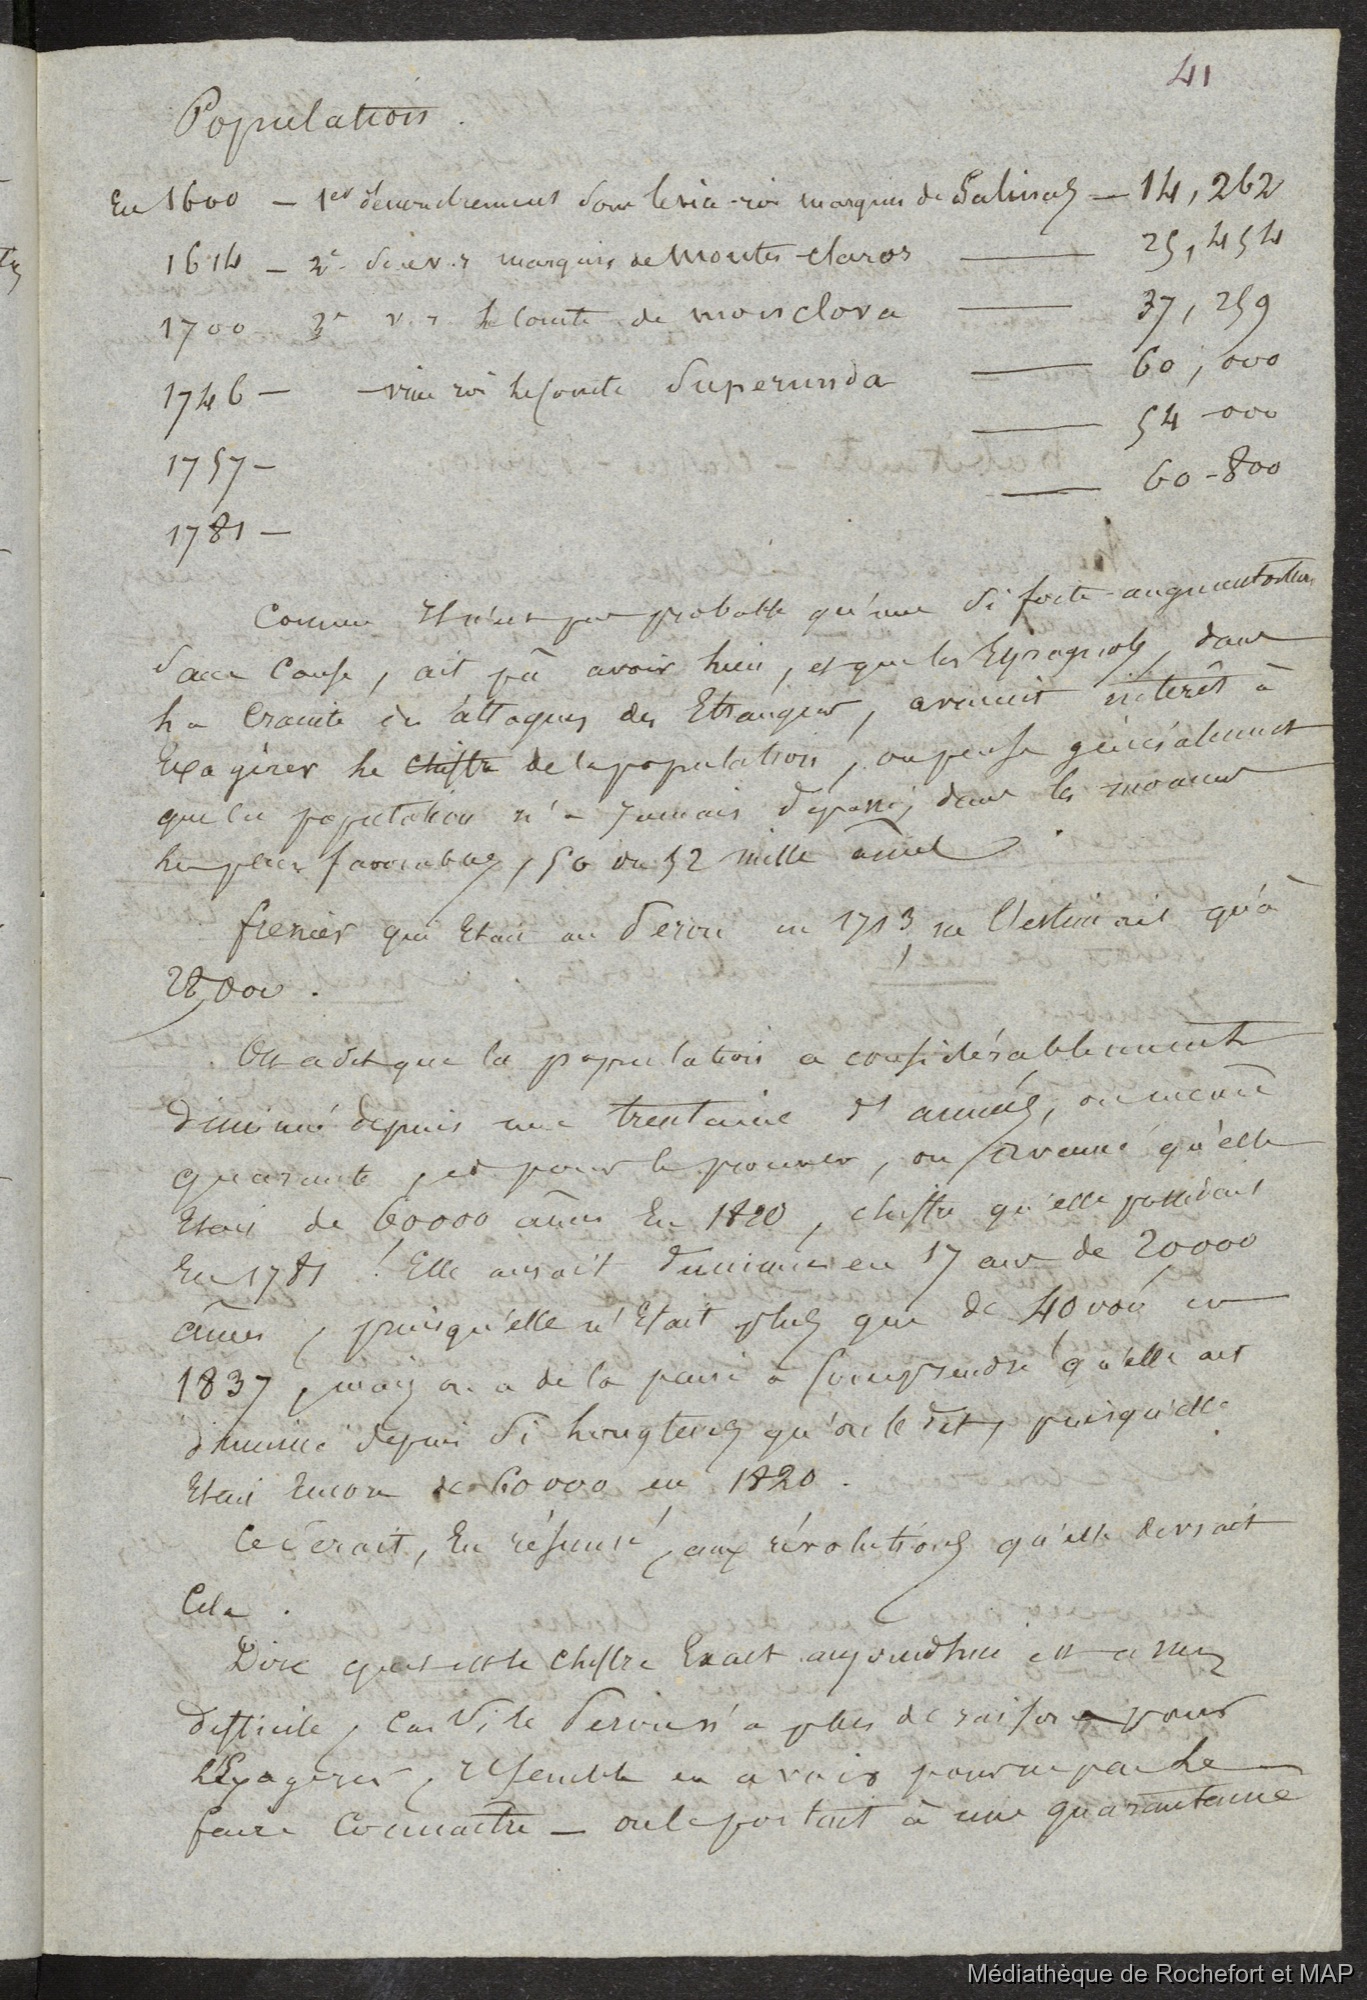 41
Population.
En 1600 — 1er dénombrement sous le vice-roi marquis de Salinas — 14,262
1614 — 2e v. r marquis de Montes-claros — 25,454
1700 3e v. r le Comte de monclova — 37,259
1746 — vice roi le Comte Superunda — 60,000
1757 — — 54-000
1781 — — 60-800
Comme il n'est pas probable qu'une si forte augmentation
sans cause, ait pû avoir lieu, et que les Espagnols, dans
la crainte des attaques des Etrangers, avaient intérêt à
Exagérer le chiffre de la population, on pense généralement
que la population n'a jamais dépassé, dans les moments
les plus favorables, 50 ou 52 mille âmes.
frezier qui Etait au Pérou en 1713, ne l'estimait qu'à
28,000.
On a dit que la population a considérablement
diminué depuis une trentaine d'années, ou même
quarante, et pour le prouver, on avance qu'elle
Etait de 60000 âmes En 1820, chiffre qu'elle possédait
En 1781! Elle aurait diminué en 17 ans de 20,000
âmes, puisqu'elle n'Etait plus que de 40000 en
1837, mais on a de la peine à comprendre qu'elle ait
diminué depuis si longtemps qu'on le dit, puisqu'elle
Etait Encore de 60000 en 1820.
Ce serait, En résumé, aux révolutions qu'elle devrait
Cela.
Dire quel est le chiffre Exact aujourdhui est assez
difficile, car si le Pérou n'a plus de raison pour
l'Exagérer, il semble en avoir pour ne pas le
faire Connaître — on le portait à une quarantaine
Médiathèque de Rochefort et MAP